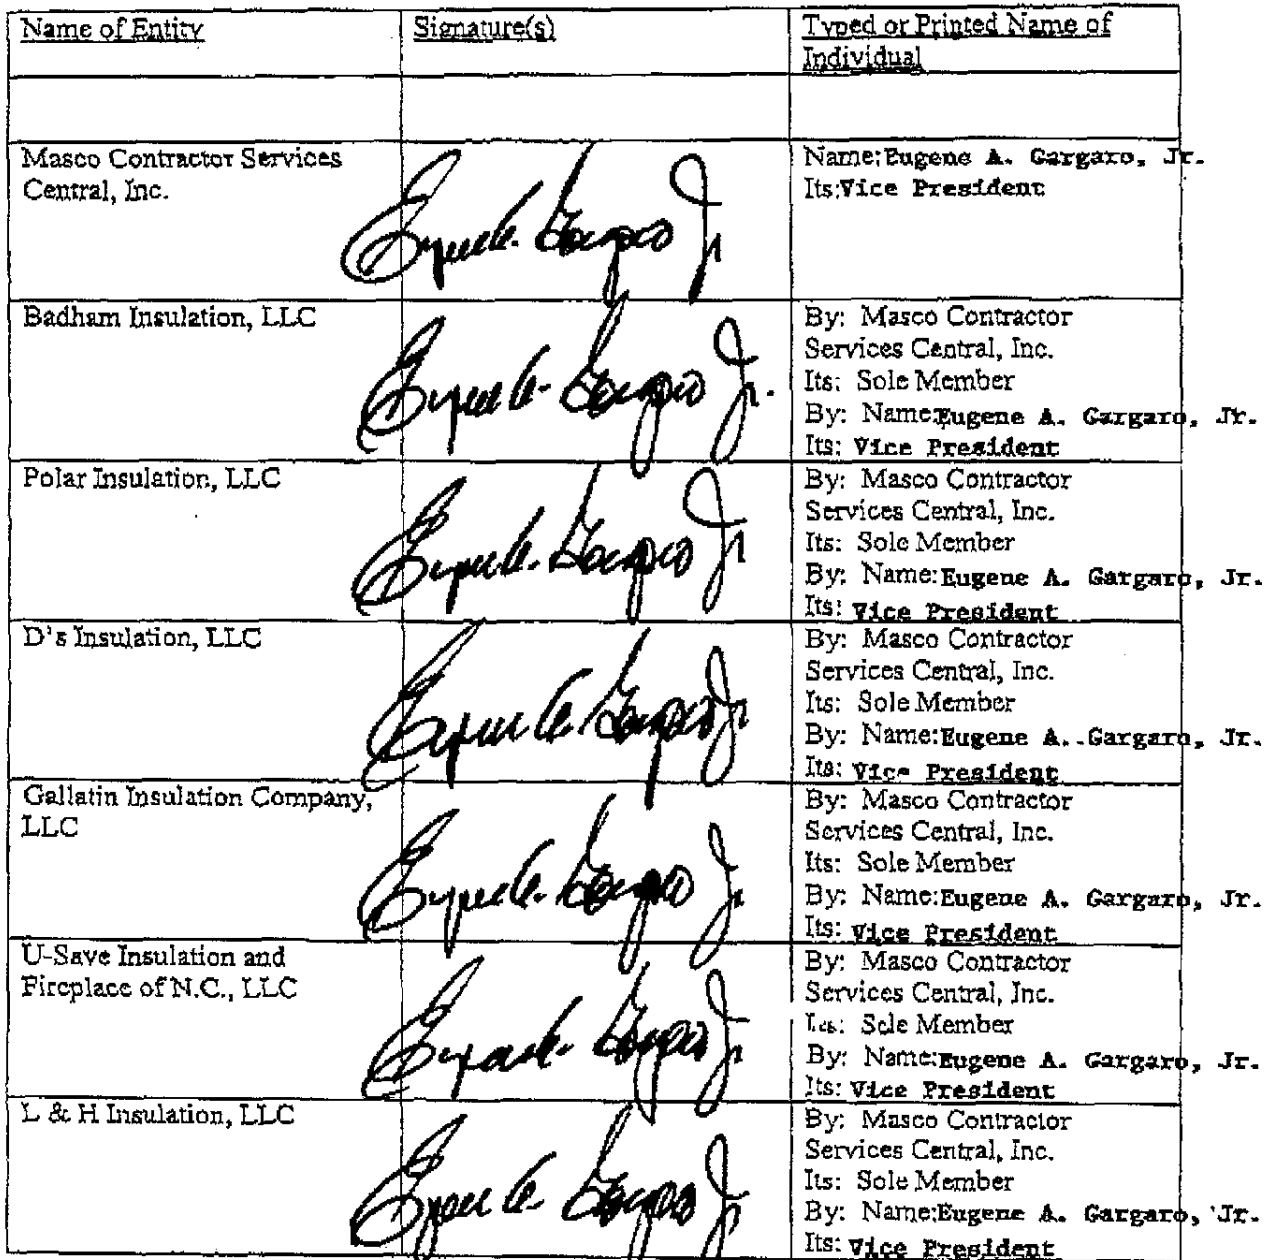 Name of Entity
Signature(s)
Typed or Printed Name of
Individual
Masco Contractor Services
Central, Inc.
Eugene A. Gargaro Jr
Name: Eugene A. Gargaro, Jr.
Its: Vice President
Badham Insulation, LLC
Eugene A. Gargaro Jr.
By: Masco Contractor
Services Central, Inc.
Its: Sole Member
By: Name: Eugene A. Gargaro, Jr.
Its: Vice President
Polar Insulation, LLC
Eugene A. Gargaro Jr
By: Masco Contractor
Services Central, Inc.
Its: Sole Member
By: Name: Eugene A. Gargaro, Jr.
Its: Vice President
D's Insulation, LLC
Eugene A. Gargaro Jr
By: Masco Contractor
Services Central, Inc.
Its: Sole Member
By: Name: Eugene A. Gargaro, Jr.
Its: Vice President
Gallatin Insulation Company,
LLC
Eugene A. Gargaro Jr
By: Masco Contractor
Services Central, Inc.
Its: Sole Member
By: Name: Eugene A. Gargaro, Jr.
Its: Vice President
U-Save Insulation and
Fireplace of N.C., LLC
Eugene A. Gargaro Jr
By: Masco Contractor
Services Central, Inc.
Its: Sole Member
By: Name: Eugene A. Gargaro, Jr.
Its: Vice President
L & H Insulation, LLC
Eugene A. Gargaro Jr
By: Masco Contractor
Services Central, Inc.
Its: Sole Member
By: Name: Eugene A. Gargaro, Jr.
Its: Vice President